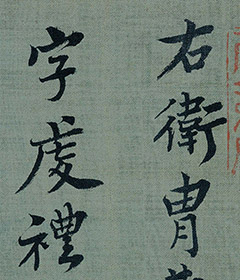 右衛胄
字虔禮